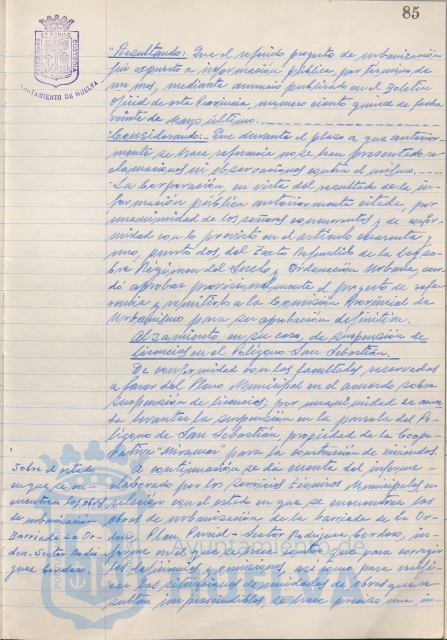 85
AYUNTAMIENTO DE HUELVA
"Resultando: Que el referido proyecto de urbanización
fué expuesto a información pública, por término de
un mes, mediante anuncio publicado en el Boletín
Oficial de esta Provincia, número ciento quince de fecha
veinte de Mayo último.
Considerando:- Que durante el plazo a que anterior-
mente se hace referencia no se han presentado re-
clamaciones ni observaciones contra el mismo.
La Corporación, en vista del resultado de la in-
formación pública anteriormente citada, por
unanimidad de los señores concurrentes y de confor-
midad con lo previsto en el artículo cuarenta y
uno, punto dos, del Texto Refundido de la Ley so-
bre Régimen del Suelo y Ordenación Urbana, acor-
dó aprobar provisionalmente el proyecto de refe-
rencia y remitirlo a la Comisión Provincial de
Urbanismo para su aprobación definitiva.
Alzamiento, en su caso, de suspensión de
licencias en el Polígono San Sebastián.
De conformidad con las facultades reservadas
a favor del Pleno Municipal en el acuerdo sobre
suspensión de licencias, por unanimidad se acuer-
da levantar la suspensión en la parcela del Po-
lígono de San Sebastián, propiedad de la Coope-
rativa Miramar para la construcción de viviendas.
Sobre el estado
en que se en-
cuentran las obras
de urbanización
Barriada La Or-
den-Sector Rodrí-
guez Cordero.
A continuación se da cuenta del informe
elaborado por los Servicios Técnicos Municipales, en
relación con el estado en que se encuentran las
obras de urbanización de la barriada de La Or-
den, Plan Parcial-Sector Rodríguez Cordero, in-
forme en el que se hace constar que para corregir
las deficiencias y omisiones, así como para
las de unidades de obras que re-
sultan imprescindibles, se hace preciso una in-